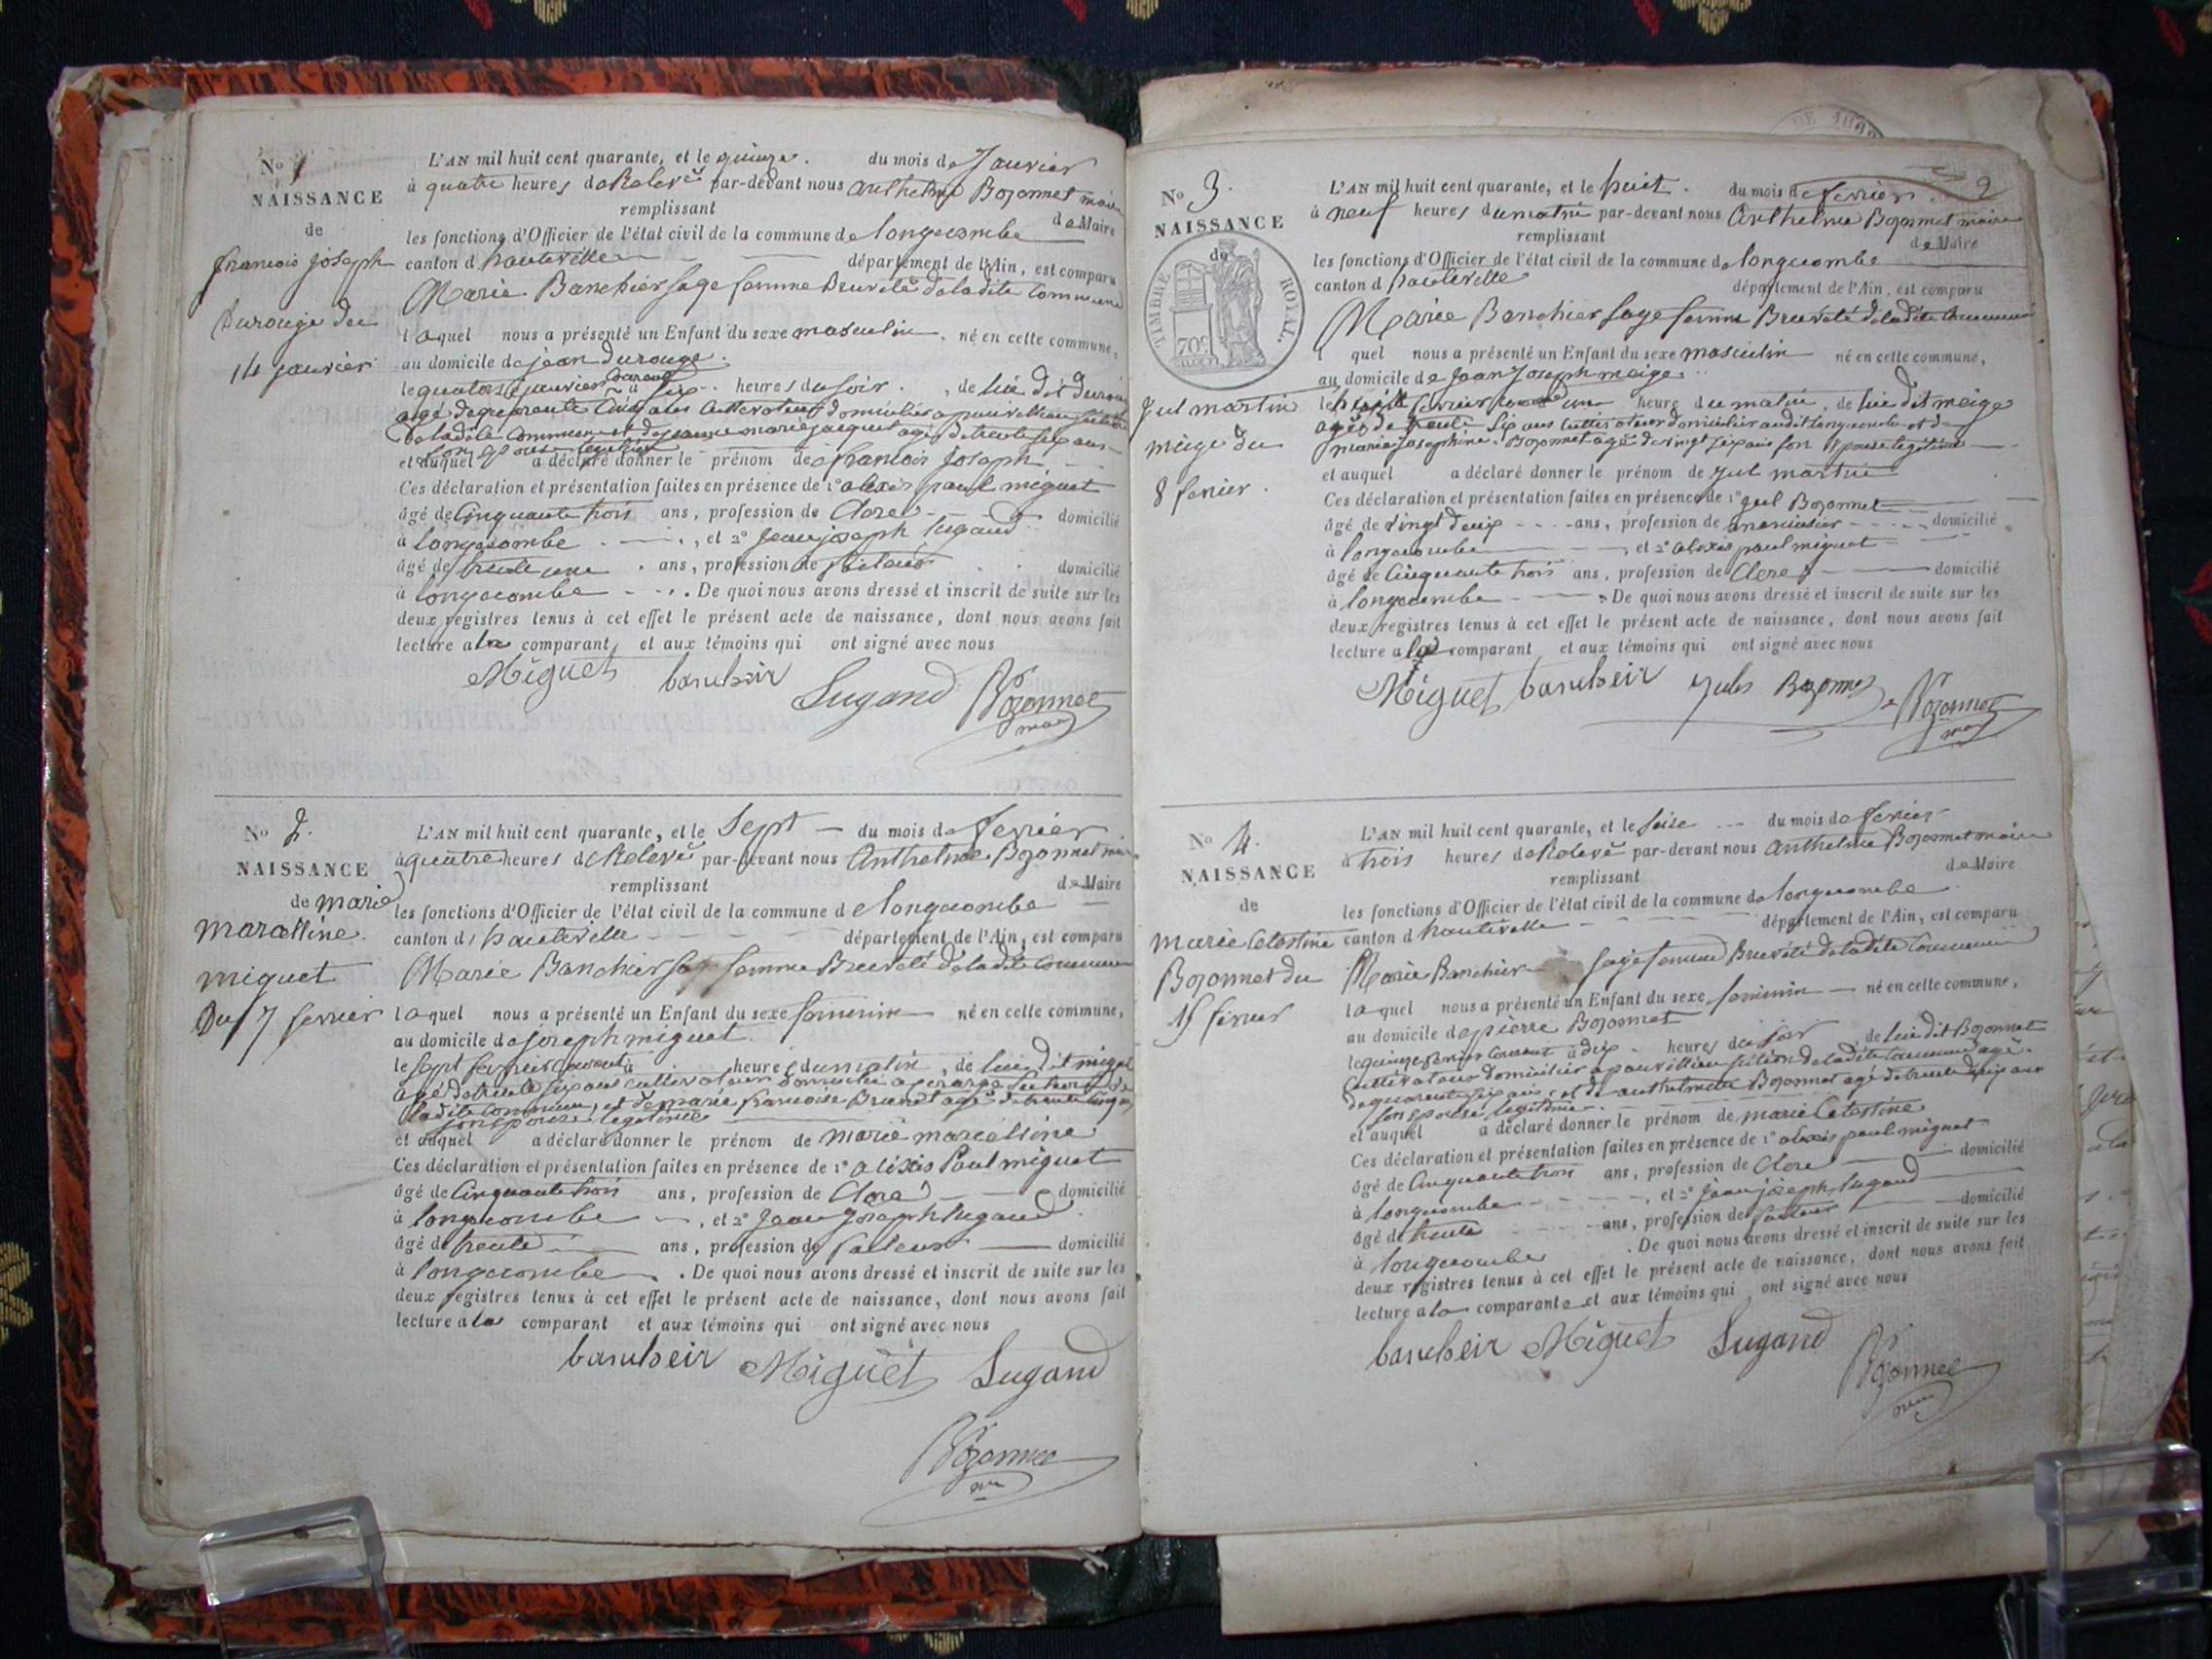 No 1
NAISSANCE
de
francois joseph
Durouge du
14 janvier
L'AN mil huit cent quarante, et le quinze. du mois de Janvier
à quatre heures de Relevé par-devant nous Anthelme Bozonnet maire
remplissant de Maire
les fonctions d'Officier de l'état civil de la commune de longecombe
canton d hauteville département de l'Ain, est comparu
Marie Banchier sage femme Bruveté de ladite Commune
laquel nous a présenté un Enfant du sexe masculin, né en cette commune,
au domicile de jean durouge.
le quatorze janvier à six heures du soir, de lui dit
agé de quarante Cinq ans Cultivateur domicilier a
de ladite Commune et de jeanne marie jacquet agé de trente six ans
son epouse legitime
et auquel a déclaré donner le prénom de francois Joseph
Ces déclaration et présentation faites en présence de 1° alexis paul miguet
âgé de Cinquante trois ans, profession de Clore domicilié
à longecombe, et 2° Jean joseph lugand
âgé de trente une ans, profession de domicilié
à longecombe. De quoi nous avons dressé et inscrit de suite sur les
deux registres tenus à cet effet le présent acte de naissance, dont nous avons fait
lecture a la comparant et aux témoins qui ont signé avec nous
Miguet bancheir Lugand Bozonnet
No 2.
NAISSANCE
de marie
marcelline
miguet
Du 7 fevrier
L'AN mil huit cent quarante, et le Sept du mois de fevrier
à quatre heures de Relevé par-devant nous Anthelme Bozonnet
remplissant de Maire
les fonctions d'Officier de l'état civil de la commune de longecombe
canton d hauteville département de l'Ain, est comparu
Marie Banchier sage femme Bruveté de ladite Commune
laquel nous a présenté un Enfant du sexe feminin né en cette commune,
au domicile de joseph miguet.
le sept fevrier courant à heures du matin, de lui dit miguet
agé de trente six ans cultivateur domicilié a
ladite Commune, et de marie francoise Brunet agé de trente
son epouse legitime
et auquel a déclaré donner le prénom de marie marcelline
Ces déclaration et présentation faites en présence de 1° alexis Paul miguet
âgé de Cinquante trois ans, profession de Clore domicilié
à longecombe, et 2° Jean Joseph lugand
âgé de trente ans, profession de facteur domicilié
à longecombe. De quoi nous avons dressé et inscrit de suite sur les
deux registres tenus à cet effet le présent acte de naissance, dont nous avons fait
lecture à la comparant et aux témoins qui ont signé avec nous
bancheir Miguet Lugand
Bozonnet
2
No 3.
NAISSANCE
de
TIMBRE ROYAL
70c
Jul martin
miege du
8 fevrier.
L'AN mil huit cent quarante, et le huit. du mois de fevrier
à neuf heures du matin par-devant nous Anthelme Bozonnet maire
remplissant de Maire
les fonctions d'Officier de l'état civil de la commune de longecombe
canton d hauteville département de l'Ain, est comparu
Marie Banchier sage femme Bruveté de ladite Commune
quel nous a présenté un Enfant du sexe masculin né en cette commune,
au domicile de Jean Joseph meige.
le huit fevrier une heure du matin, de lui dit meige
agés de trente six ans cultivateur domicilier audit longecombe et de
marie Josephine Bozonnet agé de vingt six ans son Epouse legitime
et auquel a déclaré donner le prénom de Jul martin
Ces déclaration et présentation faites en présence de 1° Jul Bozonnet
âgé de vingt deux ans, profession de domicilié
à longecombe, et 2° alexis paul miguet
âgé de Cinquante trois ans, profession de Clore domicilié
à longecombe De quoi nous avons dressé et inscrit de suite sur les
deux registres tenus à cet effet le présent acte de naissance, dont nous avons fait
lecture a la comparant et aux témoins qui ont signé avec nous
Miguet bancheir Jules Bozonnet Bozonnet
No 4.
NAISSANCE
de
marie Celestine
Bozonnet du
15 fevrier
L'AN mil huit cent quarante, et le seise du mois de fevrier
à trois heures de Relevé par-devant nous Anthelme Bozonnet maire
remplissant de Maire
les fonctions d'Officier de l'état civil de la commune de longecombe
canton d hauteville département de l'Ain, est comparu
Marie Banchier sage femme Bruveté de ladite Commune
laquel nous a présenté un Enfant du sexe feminin né en cette commune,
au domicile de pierre Bozonnet
le quinze fevrier Courant à dix heures du soir, de lui dit Bozonnet
Cultivateur domicilier a de ladite Commune agé
de quarante six ans, et de anthelmette Bozonnet agé de trente deux ans
son epouse legitime
et auquel a déclaré donner le prénom de marie Celestine
Ces déclaration et présentation faites en présence de 1° alexis paul miguet
âgé de Cinquante trois ans, profession de Clore domicilié
à longecombe, et 2° Jean joseph lugand
âgé de trente ans, profession de facteur domicilié
à longecombe. De quoi nous avons dressé et inscrit de suite sur les
deux registres tenus à cet effet le présent acte de naissance, dont nous avons fait
lecture a la comparante et aux témoins qui ont signé avec nous
bancheir Miguet Lugand
Bozonnet